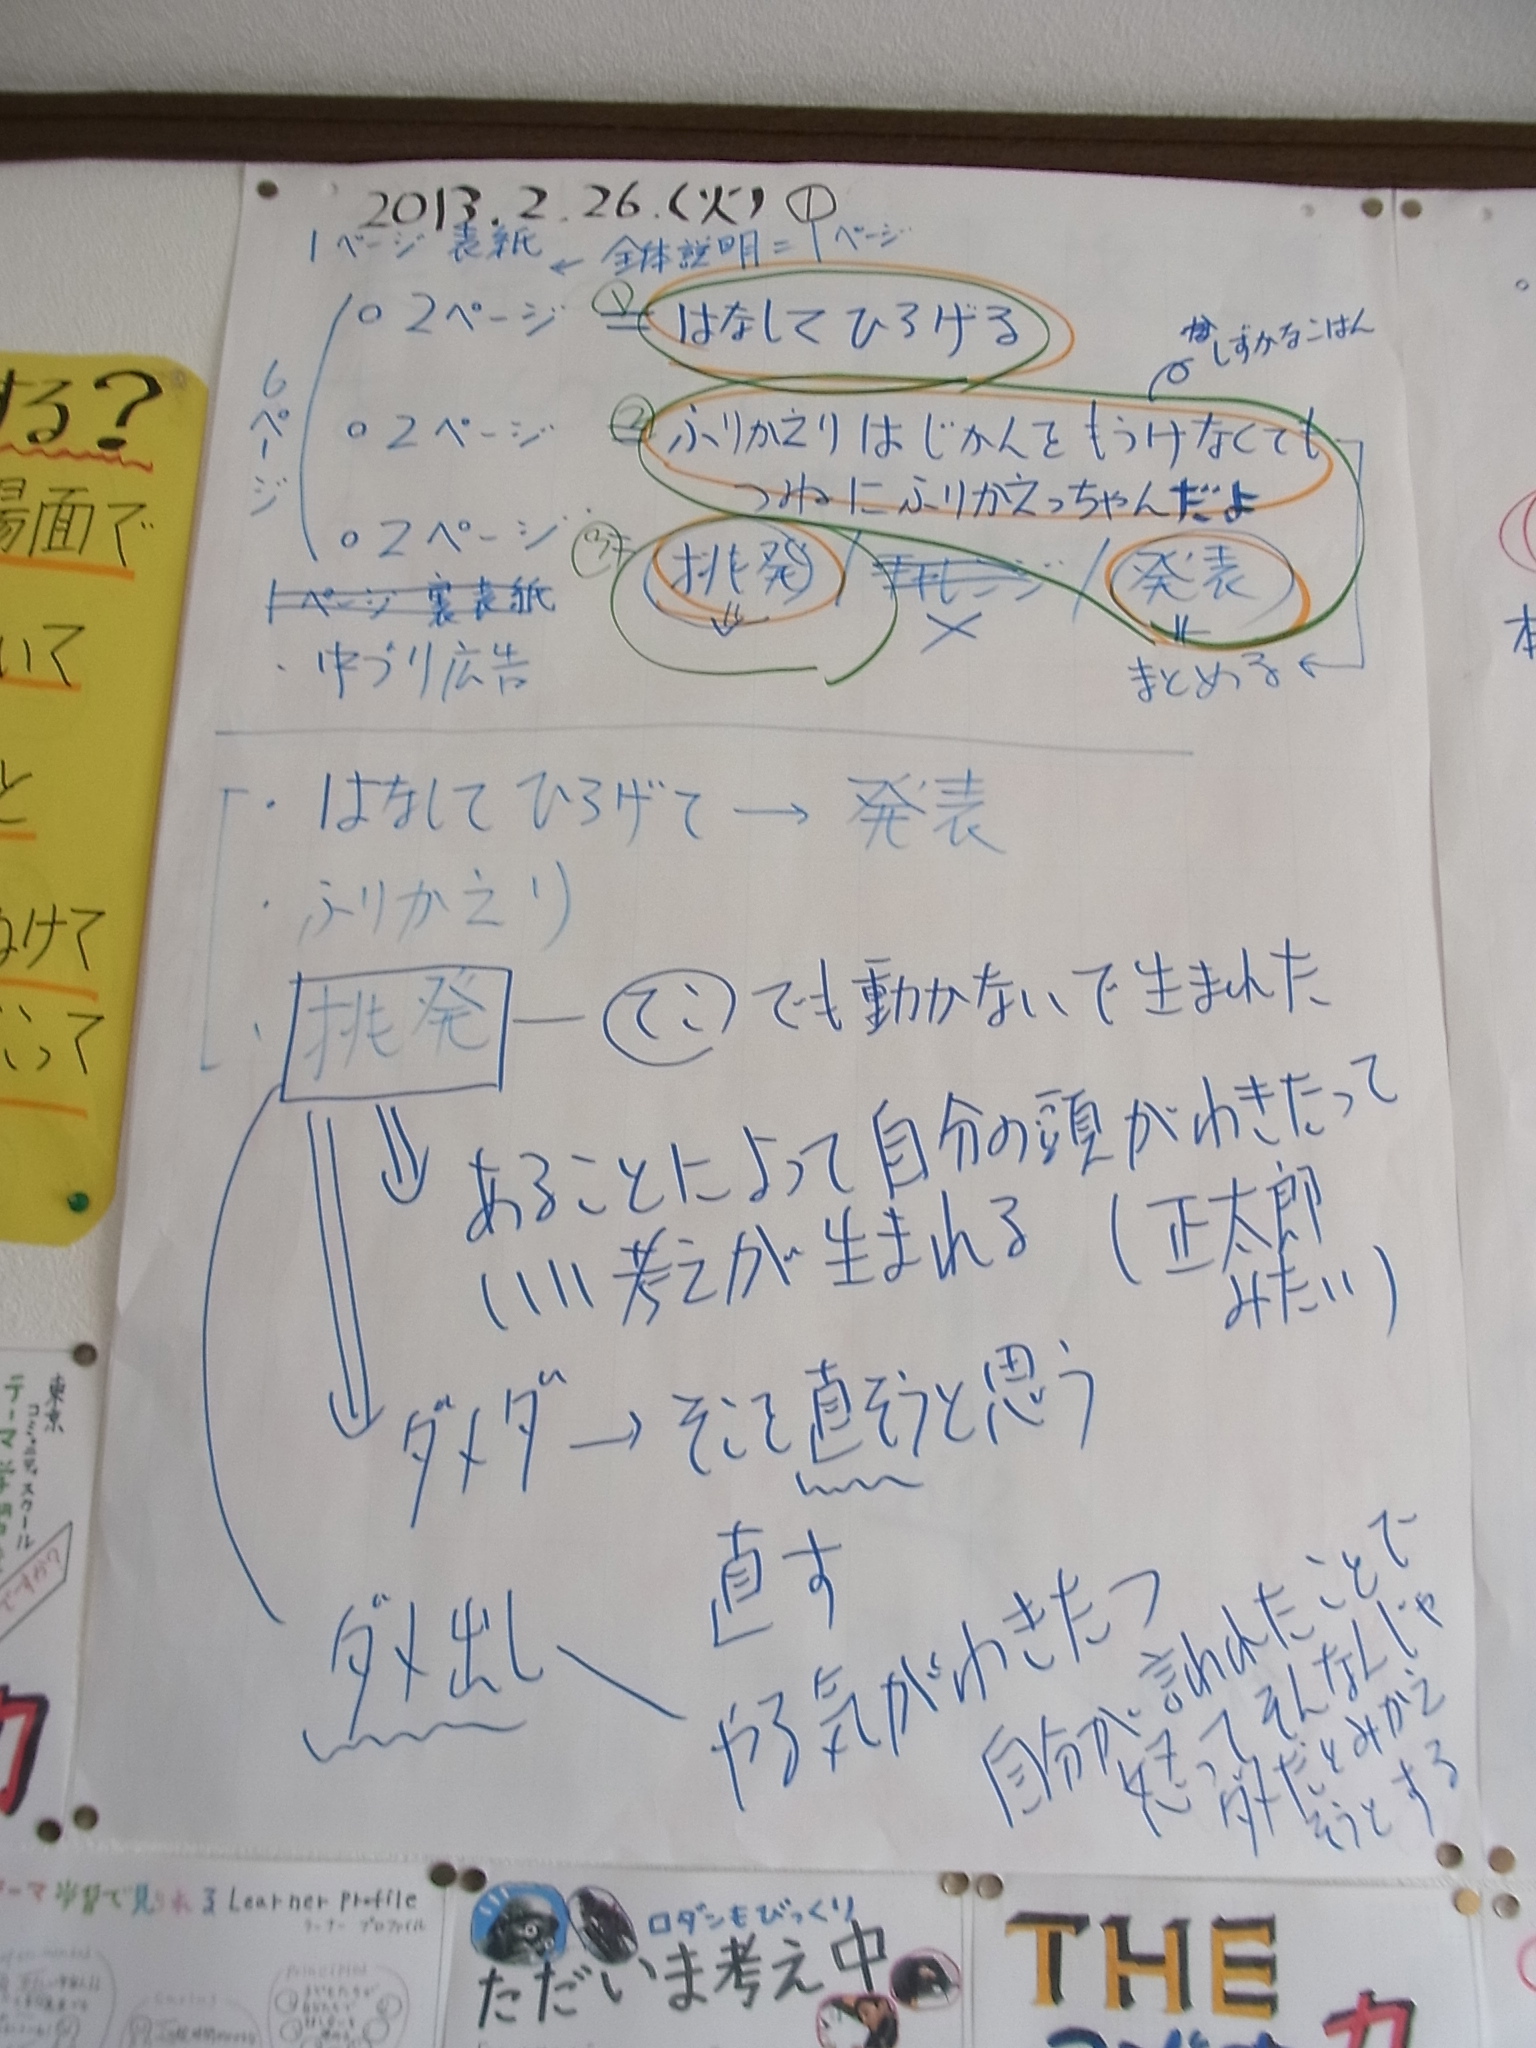 2013.2.26.(火) ①
1ページ 表紙 ← 全体説明=1ページ
6ページ
○2ページ ① はなしてひろげる
しずかなごはん
○2ページ ② ふりかえりはじかんをもうけなくても
つねにふりかえっちゃんだよ
○2ページ ③ 挑発 / チャレンジ / 発表
1ページ 裏表紙
・中づり広告
まとめる
・はなしてひろげて → 発表
・ふりかえり
・挑発 — てこでも動かないで生まれた
あることによって自分の頭がわきたって
いい考えが生まれる (正太郎
みたい)
ダメダ → そこを直そうと思う
直す
ダメ出し
やる気がわきたつ
自分が言われたことで
怒ってそんなんじゃ
ダメだとみかえ
そうとする
する?
場面で
いて
と
なけて
いって
東京
コミュニティスクール
テーマ学習
ですか?
カ
テーマ学習で見られる Learner Profile
ラーナー プロファイル
ロダンもびっくり
ただいま考え中
THE
カ
本